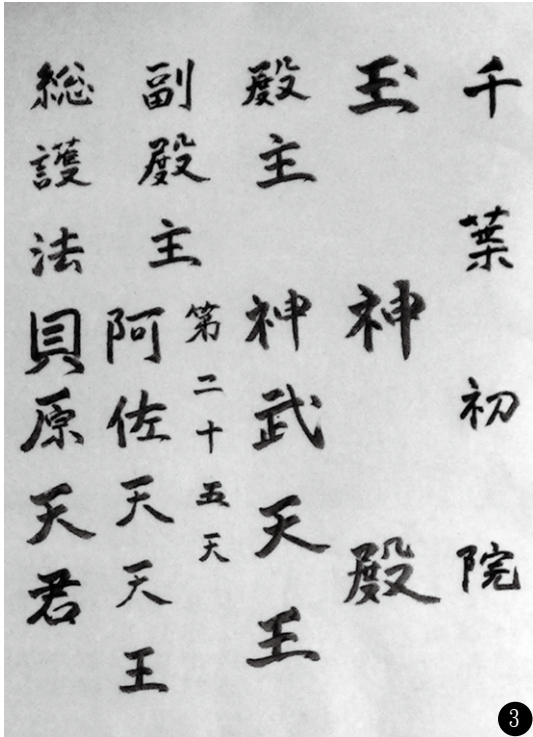 千葉初院
玉神殿
殿主 神武天王
第二十五天
副殿主 阿佐天天王
総護法 貝原天君
3